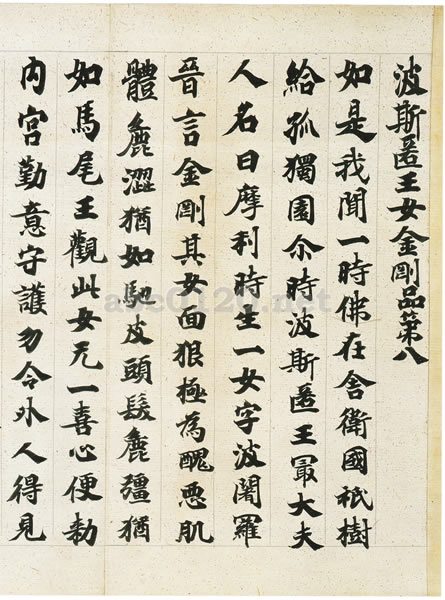 波斯匿王女金剛品第八
如是我聞一時佛在舍衛國祇樹
給孤獨園尒時波斯匿王冣大夫
人名曰摩利時生一女字波闍羅
晉言金剛其女面狠極為醜惡肌
體麁澀猶如馳皮頭髮麁彊猶
如馬尾王觀此女无一喜心便勑
内宮勤意守護勿令外人得見
abc0120.net